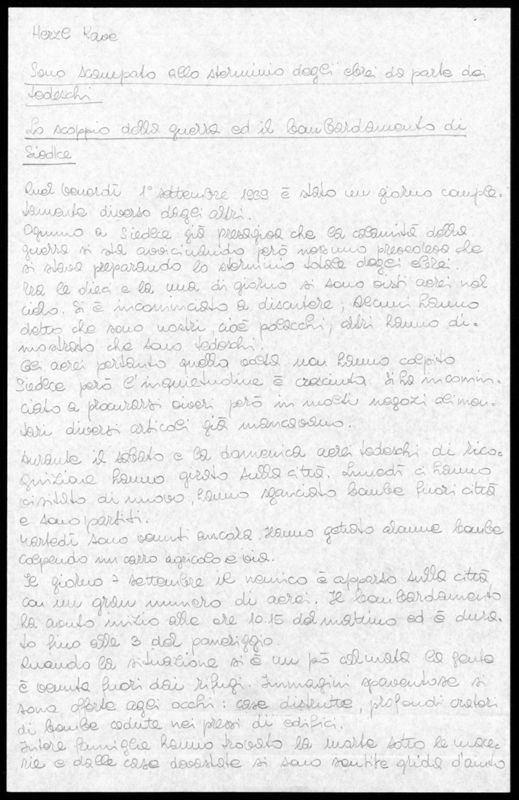 Herzl Kave
Sono scampato allo sterminio degli ebrei da parte dei
tedeschi
Lo scoppio della guerra ed il bombardamento di
Siedlce
Quel venerdì 1° settembre 1939 è stato un giorno comple-
tamente diverso dagli altri.
Ognuno a Siedlce già presagiva che la calamità della
guerra si sta avvicinando però nessuno prevedeva che
si stava preparando lo sterminio totale degli ebrei.
Tra le dieci e la una di giorno si sono visti aerei nel
cielo. Si è incominciato a discutere, alcuni hanno
detto che sono nostri, cioè polacchi, altri hanno di-
mostrato che sono tedeschi.
Gli aerei pertanto quella volta non hanno colpito
Siedlce però l'inquietudine è cresciuta. Si ha incomin-
ciato a procurarsi viveri però in molti negozi alimen-
tari diversi articoli già mancavano.
Durante il sabato e la domenica aerei tedeschi di rico-
gnizione hanno girato sulla città. Lunedì ci hanno
visitato di nuovo, hanno sganciato bombe fuori città
e sono partiti.
Martedì sono venuti ancora. Hanno gettato alcune bombe
colpendo un carro agricolo e via.
Il giorno 7 settembre il nemico è apparso sulla città
con un gran numero di aerei. Il bombardamento
ha avuto inizio alle ore 10.15 del mattino ed è dura-
to fino alle 3 del pomeriggio.
Quando la situazione si è un pò calmata la gente
è venuta fuori dai rifugi. Immagini spaventose si
sono offerte agli occhi: case distrutte, profondi crateri
di bombe cadute nei pressi di edifici.
Intere famiglie hanno trovato la morte sotto le mace-
rie e dalle case devastate si sono sentite grida d'aiuto